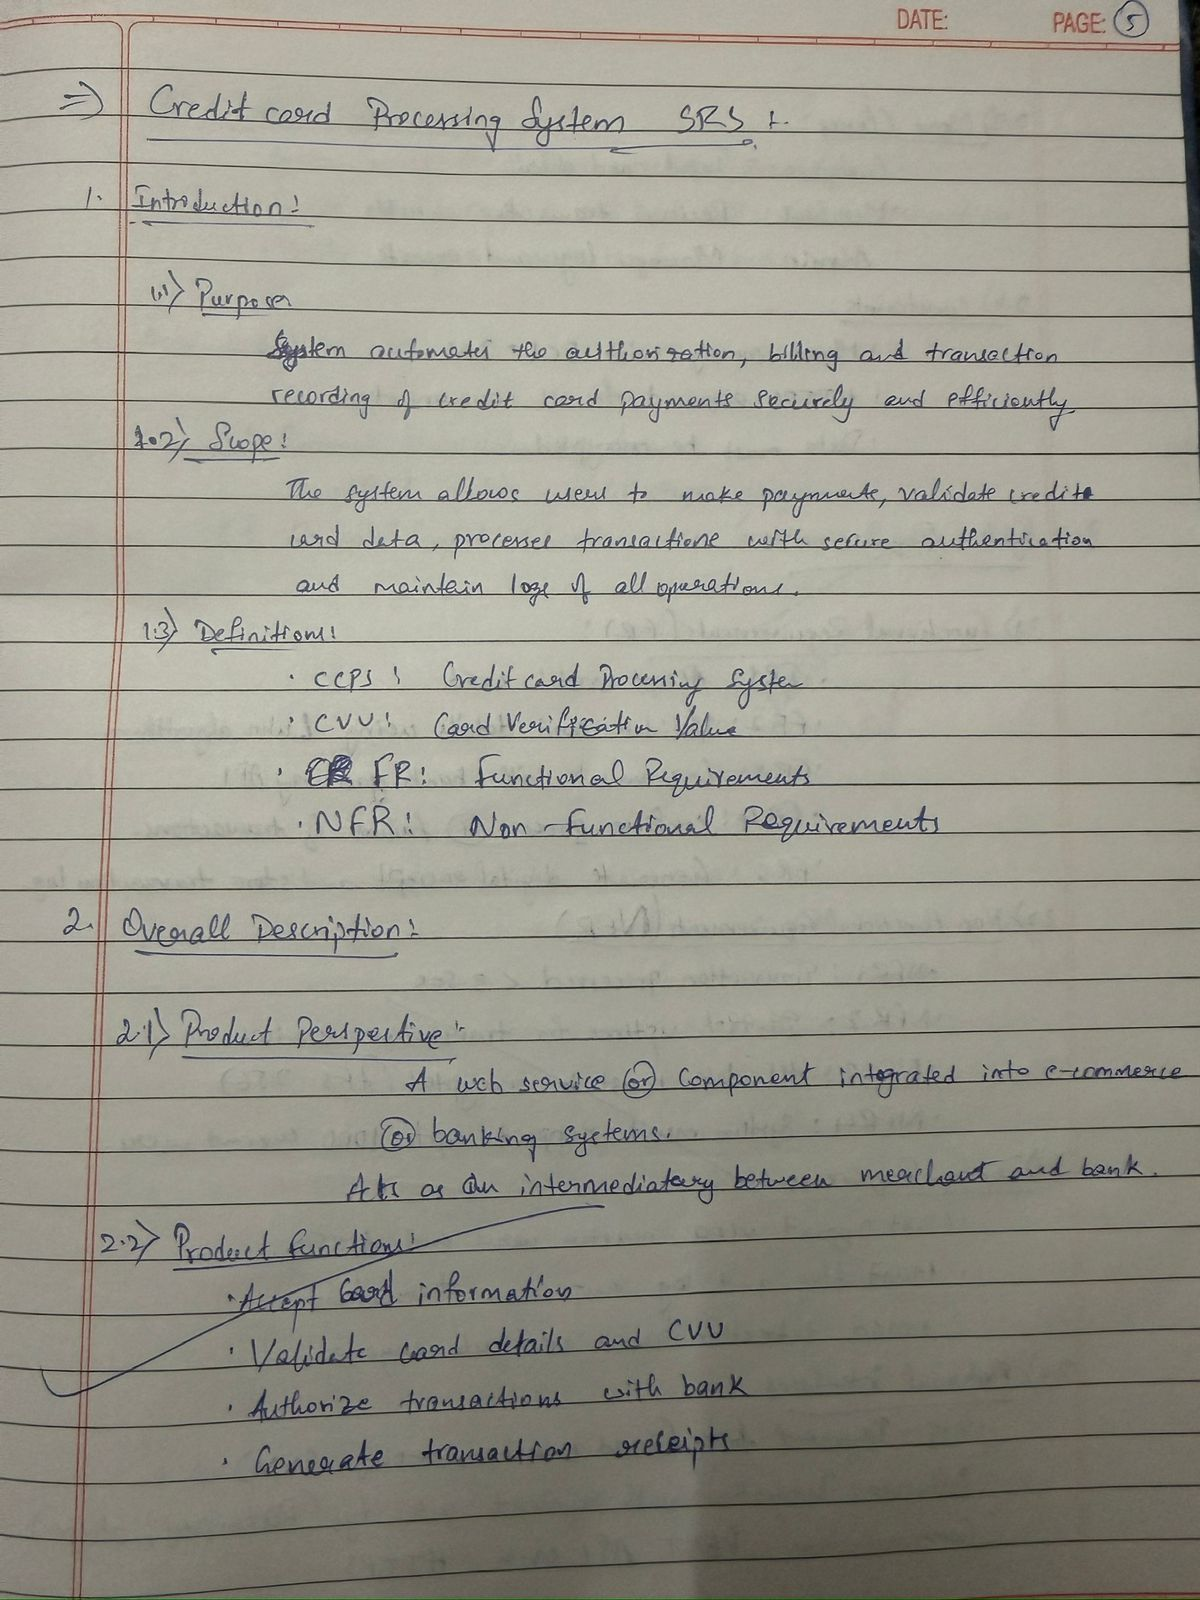 DATE: PAGE: 5
=> Credit card Processing System SRS :-
1. Introduction:
1.1) Purpose
System automates the authorization, billing and transaction
recording of credit card payments securely and efficiently
1.2) Scope:
The system allows users to make payments, validate credit
card data, processes transactions with secure authentication
and maintain logs of all operations.
1.3) Definitions:
· CCPS: Credit card Processing System
· CVV: Card Verification Value
· FR: Functional Requirements
· NFR: Non-Functional Requirements
2. Overall Description:
2.1) Product Perspective:
A web service (or) component integrated into e-commerce
(or) banking systems.
Acts as an intermediatery between merchant and bank.
2.2) Product functions:
· Accept Card information
· Validate card details and CVV
· Authorize transactions with bank
· Generate transaction receipts